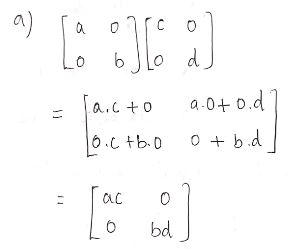 a) [a 0 0 b] [c 0 0 d]
= [a.c+0 a.0+0.d 0.c+b.0 0+b.d]
= [ac 0 0 bd]